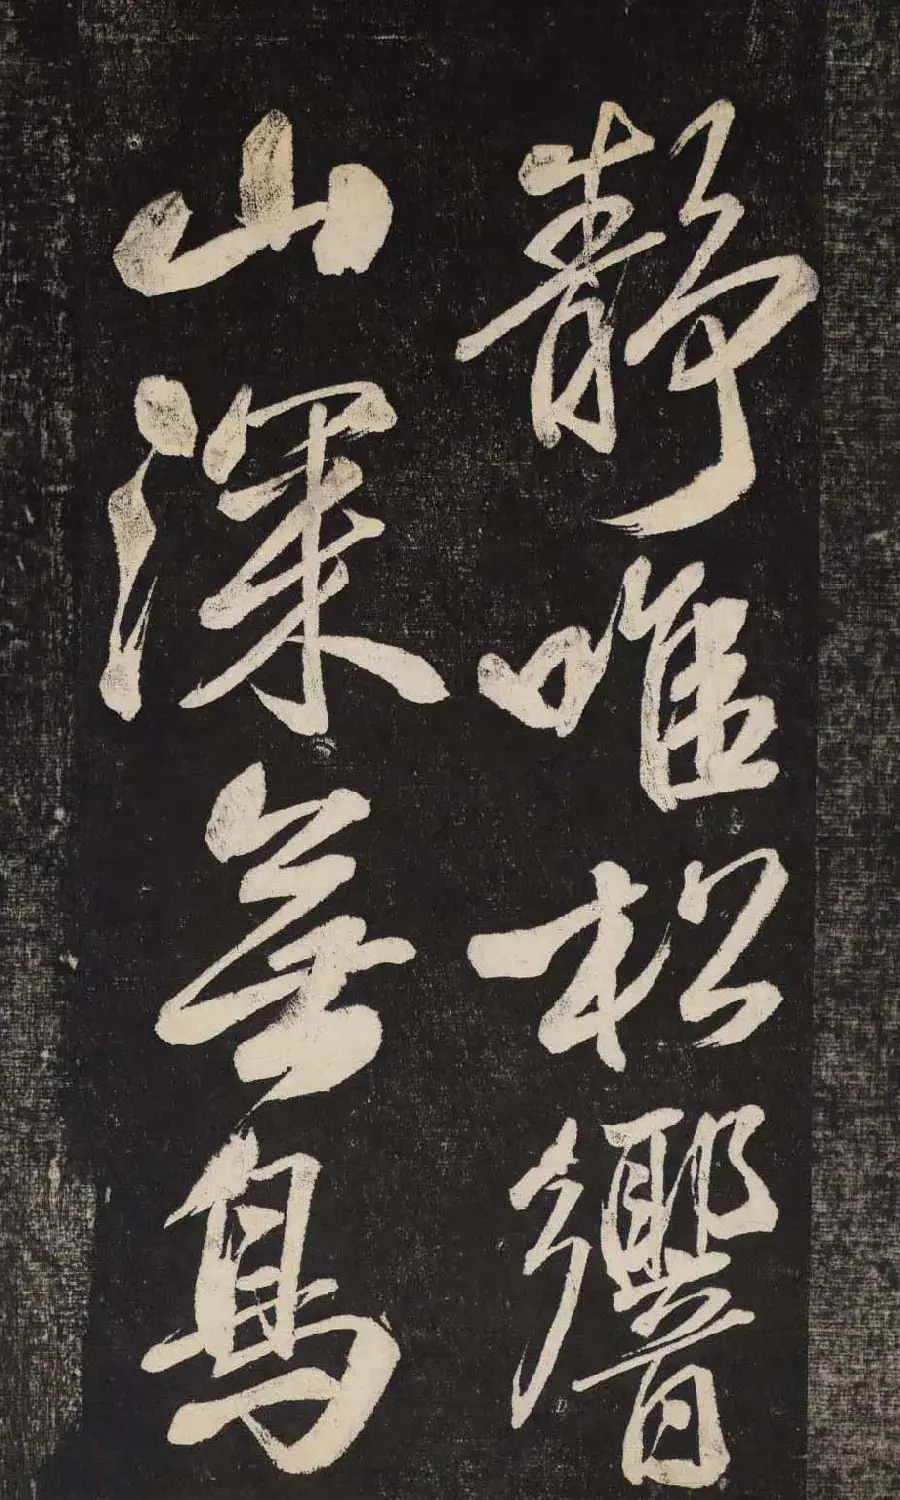 静唯松響
山深無鳥